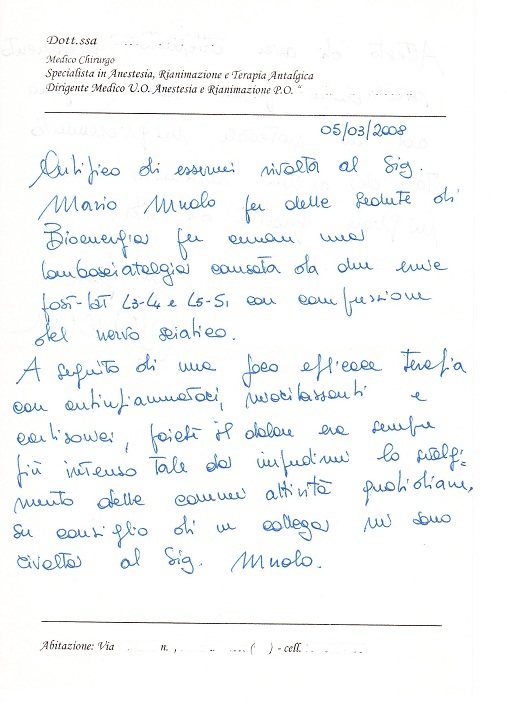 Dott.ssa
Medico Chirurgo
Specialista in Anestesia, Rianimazione e Terapia Antalgica
Dirigente Medico U.O. Anestesia e Rianimazione P.O. "
05/03/2008
Certifico di essermi rivolta al Sig.
Mario Muolo per delle sedute di
Bioenergia per curare una
lombosciatalgia causata da due ernie
post-lat L3-L4 e L5-S1 con compressione
del nervo sciatico.
A seguito di una poco efficace terapia
con antinfiammatori, miorilassanti e
cortisonici, poiché il dolore era sempre
più intenso tale da impedirmi lo svolgi-
mento delle comuni attività quotidiane,
su consiglio di un collega mi sono
rivolta al Sig. Muolo.
Abitazione: Via n. , ( ) - cell.